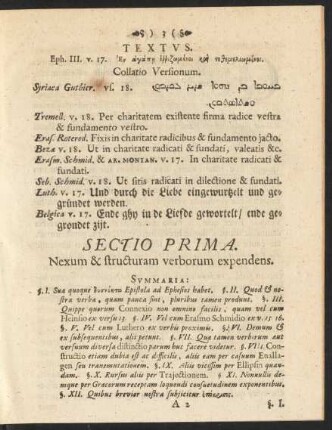 ) 3 (
TEXTVS.
Eph. III. v. 17. Ἐν ἀγάπῃ ἐῤῥιζωμένοι καὶ τεθεμελιωμένοι.
Collatio Versionum.
Syriaca Guthier. vs. 18.
Tremell. v. 18. Per charitatem existente firma radice vestra
& fundamento vestro.
Eras. Roterod. Fixis in charitate radicibus & fundamento jacto.
Beza v. 18. Ut in charitate radicati & fundati, valeatis &c.
Erasm. Schmid. & AR. MONTAN. v. 17. In charitate radicati &
fundati.
Seb. Schmid. v. 18. Ut sitis radicati in dilectione & fundati.
Luth. v. 17. Und durch die Liebe eingewurtzelt und ge-
gründet werden.
Belgica v. 17. Ende ghy in de Liefde gewortelt / ende ge-
grondet zijt.
SECTIO PRIMA.
Nexum & structuram verborum expendens.
SVMMARIA:
§. I. Sua quoque Epistola ad Ephesios habet, §. II. Quod & no-
stra verba, quam pauca sint, pluribus tamen probant. §. III.
Quippe quorum Connexio non omnino facilis, quam vel cum
Heinsio ex versu 15. §. IV. Vel cum Erasmo Schmidio ex v. 15. 16.
§. V. Vel cum Luthero ex verbis proximis, §. VI. Demum &
ex subsequentibus, alii petunt. §. VII. Qua tamen verborum aut
versuum diversa distinctio parum huc facere videtur. §. VIII. Con-
structio etiam dubia est ac difficilis, aliis eam per casuum Enalla-
gen seu transmutationem, §. IX. Aliis vicissim per Ellipsin quan-
dam, §. X. Rursus aliis per Trajectionem, §. XI. Nonnullis de-
mque per Græcorum receptam loquendi consuetudinem exponentibus,
§. XII. Quibus brevier nostra subjicitur
A 2 §. I.